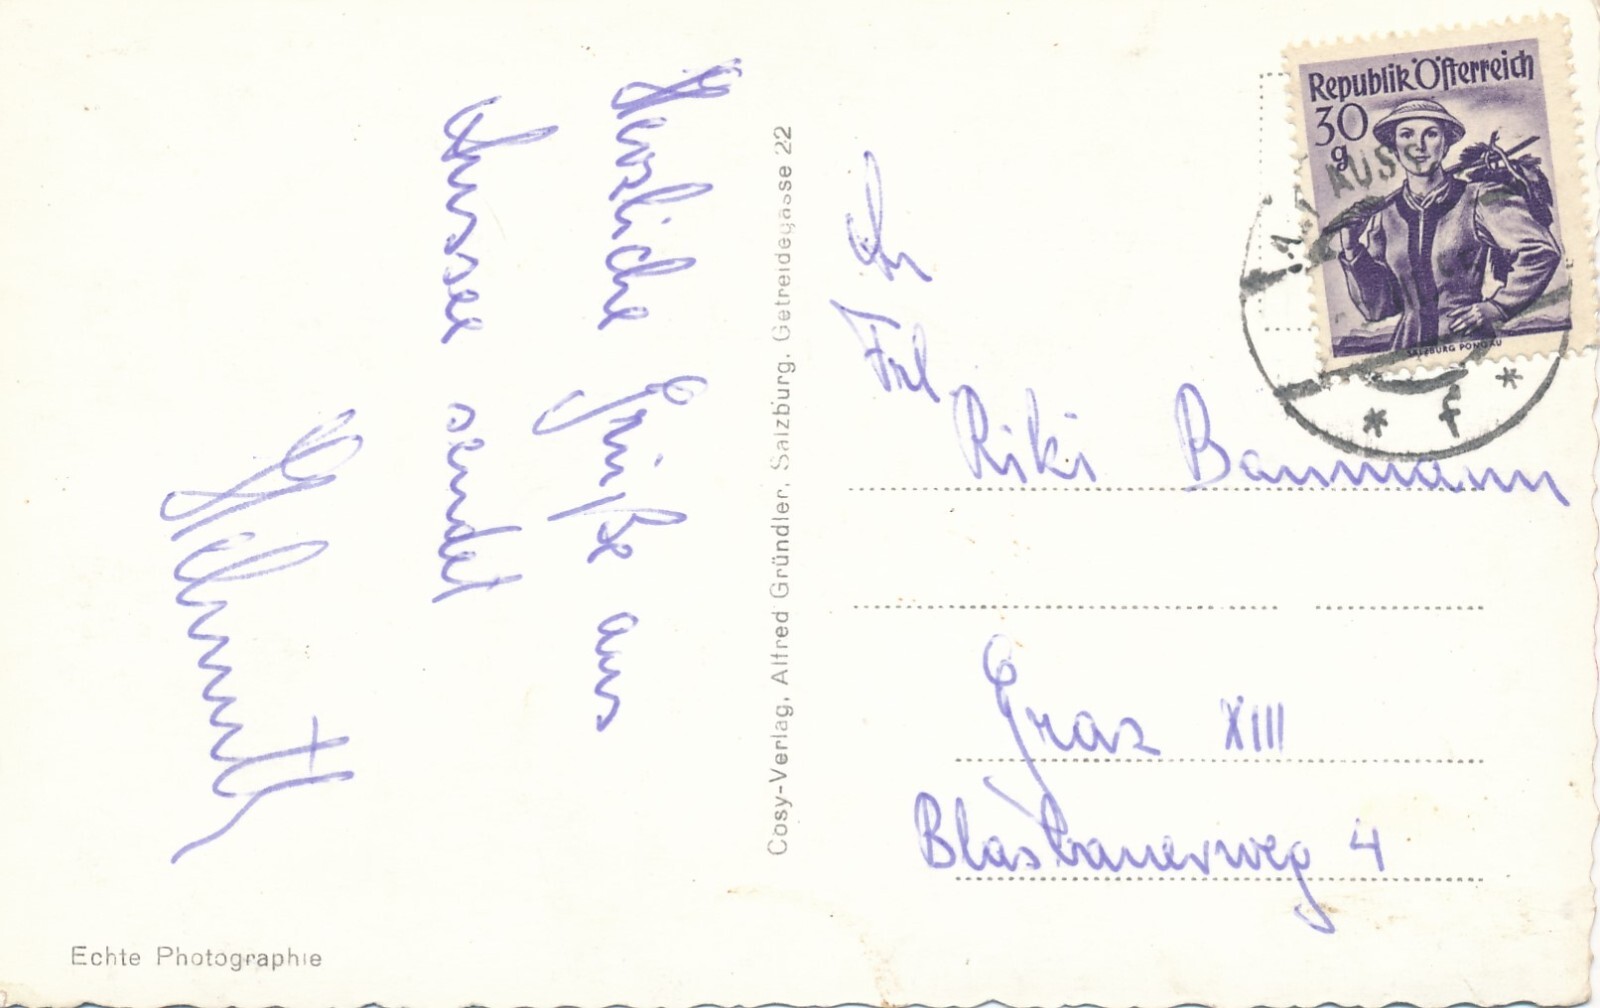 Herzliche Grüße aus
Aussee sendet
Helmuth
Echte Photographie
Cosy-Verlag, Alfred Gründler, Salzburg, Getreidegasse 22
Republik Österreich
30
g
SALZBURG PONGAU
f
An
Frl.
Riki Baumann
Graz XIII
Blasbauerweg 4